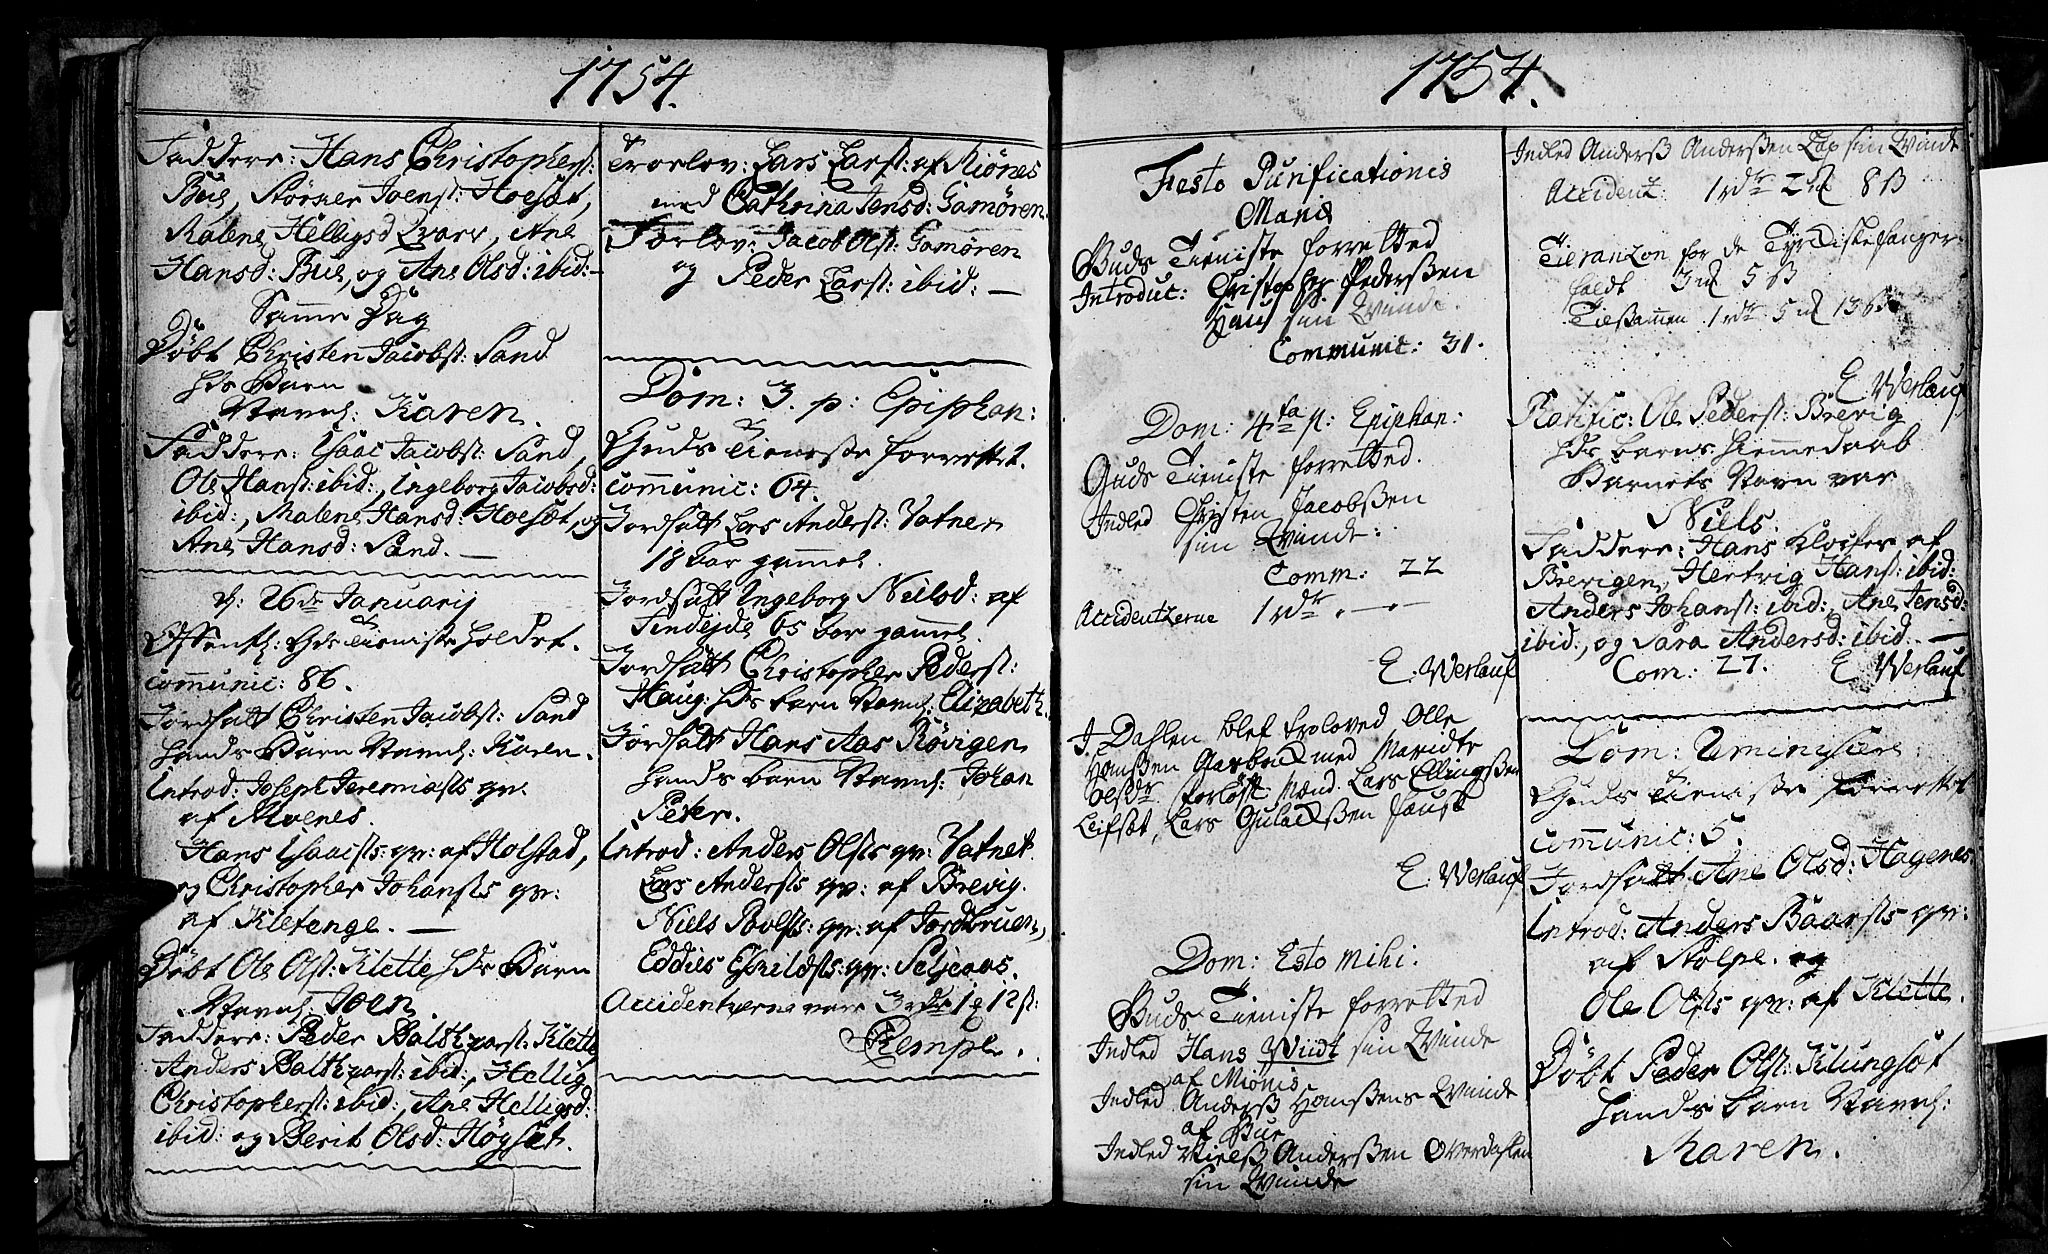 1754.
Faddere: Hans Christophers:
Bue, Störmer Joens: Hoesæt,
Malene Helligsd Qvarv, Ane
Hansd: Bue, og Ane Olsd: ibid: —
Samme Dag
Döbt Christen Jacobs: Sand
hds Barn
Navnl: Karen.
Faddere: Isaac Jacobs: Sand,
Ole Hans: ibid:, Ingeborg Jacobsd:
ibid:, Malene Hansd: Hoesæt, og
Ane Hansd: Sand. —
d: 26de Januarij
Offentl: Gds Tieniste holdet.
communic: 86.
Jordsatt Christen Jacobs: Sand
hands Barn Navnl: Karen.
Introd: Joseph Jeremiasts qv:
af Moenes.
Hans Isaacsts: qv: af Holstad,
og Christopher Johansts qv:
af Kletenge. —
Döbt Ole Ols: Klette hds Barn
Navnl: Joen.
Faddere: Peder Balthzars: Klette
Anders Balthzars: ibid:, Hellig
Christophers: ibid:, Ane Helligsd:
ibid: og Berit Olsd: Höysæt.
Trorlov: Lars Lars: af Miönes
med Cathrina Jensd: Gamören.
Forlov: Jacob Ols: Gamören
og Peder Lars: ibid: —
Dom: 3. p: Epiphan:
Guds Tieneste forrettet.
communic: 64.
Jordsatt Lars Anders: Vatner
18 aar gammel.
Jordsatt Ingeborg Nielsd: af
65 aar gammel.
Jordsatt Christopher Peders:
Haug: hds barn Navnl: Elizabeth.
Jordsatt Hans Aas Rövigen
hands barn Navnl: Johan
Peter.
Introd: Anders Olsts qv: Vatnet
Lars Andersts qv: af Brevig.
Niels Povlsts: qv: af Jordbruen,
Eddies Eskildsts: qv: Seljeaas.
Accidentzerne vare 3rdr 1 12s:
Rempe.
1754.
Festo Purificationis
Mariæ
Guds Tieniste forretted
Introduc: Christopher Pedersßen
Haug sin Qvinde.
Communic: 31.
Dom: 4ta p: Epiphan:
Guds Tieniste forretted.
Indled Christen Jacobsßen
sin Qvinde:
Comm: 22
Accidentzerne 1 rdr „ — „ —
E. Werlauf
I Dahlen blef troloved Olle
Hansßen med Maridte
Olsdr forlöft: Mænd Lars Ellingsßen
Leifsæt, Lars Gulacksßen Fauga
E. Werlauf
Dom: Esto Mihi:
Guds Tieniste forretted
Indled Hans Windt sin Qvinde
af Miönis
Indled Anderß Hansßens Qvinde
af Bue
Indled Nielß Andersßen Overdahlen
sin Qvinde
Indled Anderß Andersßen Lap sin Qvinde
Accident: 1 rdr 2 8 ß
for de Tyrckiske fanger
faldt 3 5 ß
Tilsammen 1 rdr 5 13 ß
E. Werlauf
Ratific: Ole Peders: Brevig
hds barns hiemmedaab
Barnets Navn var
Niels.
Faddere: Hans Klocker af
Brevigen, Hertvig Hans: ibid:
Anders Johans: ibid:, Ane Jensd:
ibid:, og Sara Andersd: ibid. —
Com: 27. E Werlauf
Dom:
Guds Tieniste forrettet
communic: 5.
Jordsatt Ane Olsd: Hagenes.
Introd: Anders Baarsts qv:
af Stolpe. og
Ole Olsts qv: af Klette.
Döbt Peder Ols: Klungsöt
hands barn Navnl:
Maren.